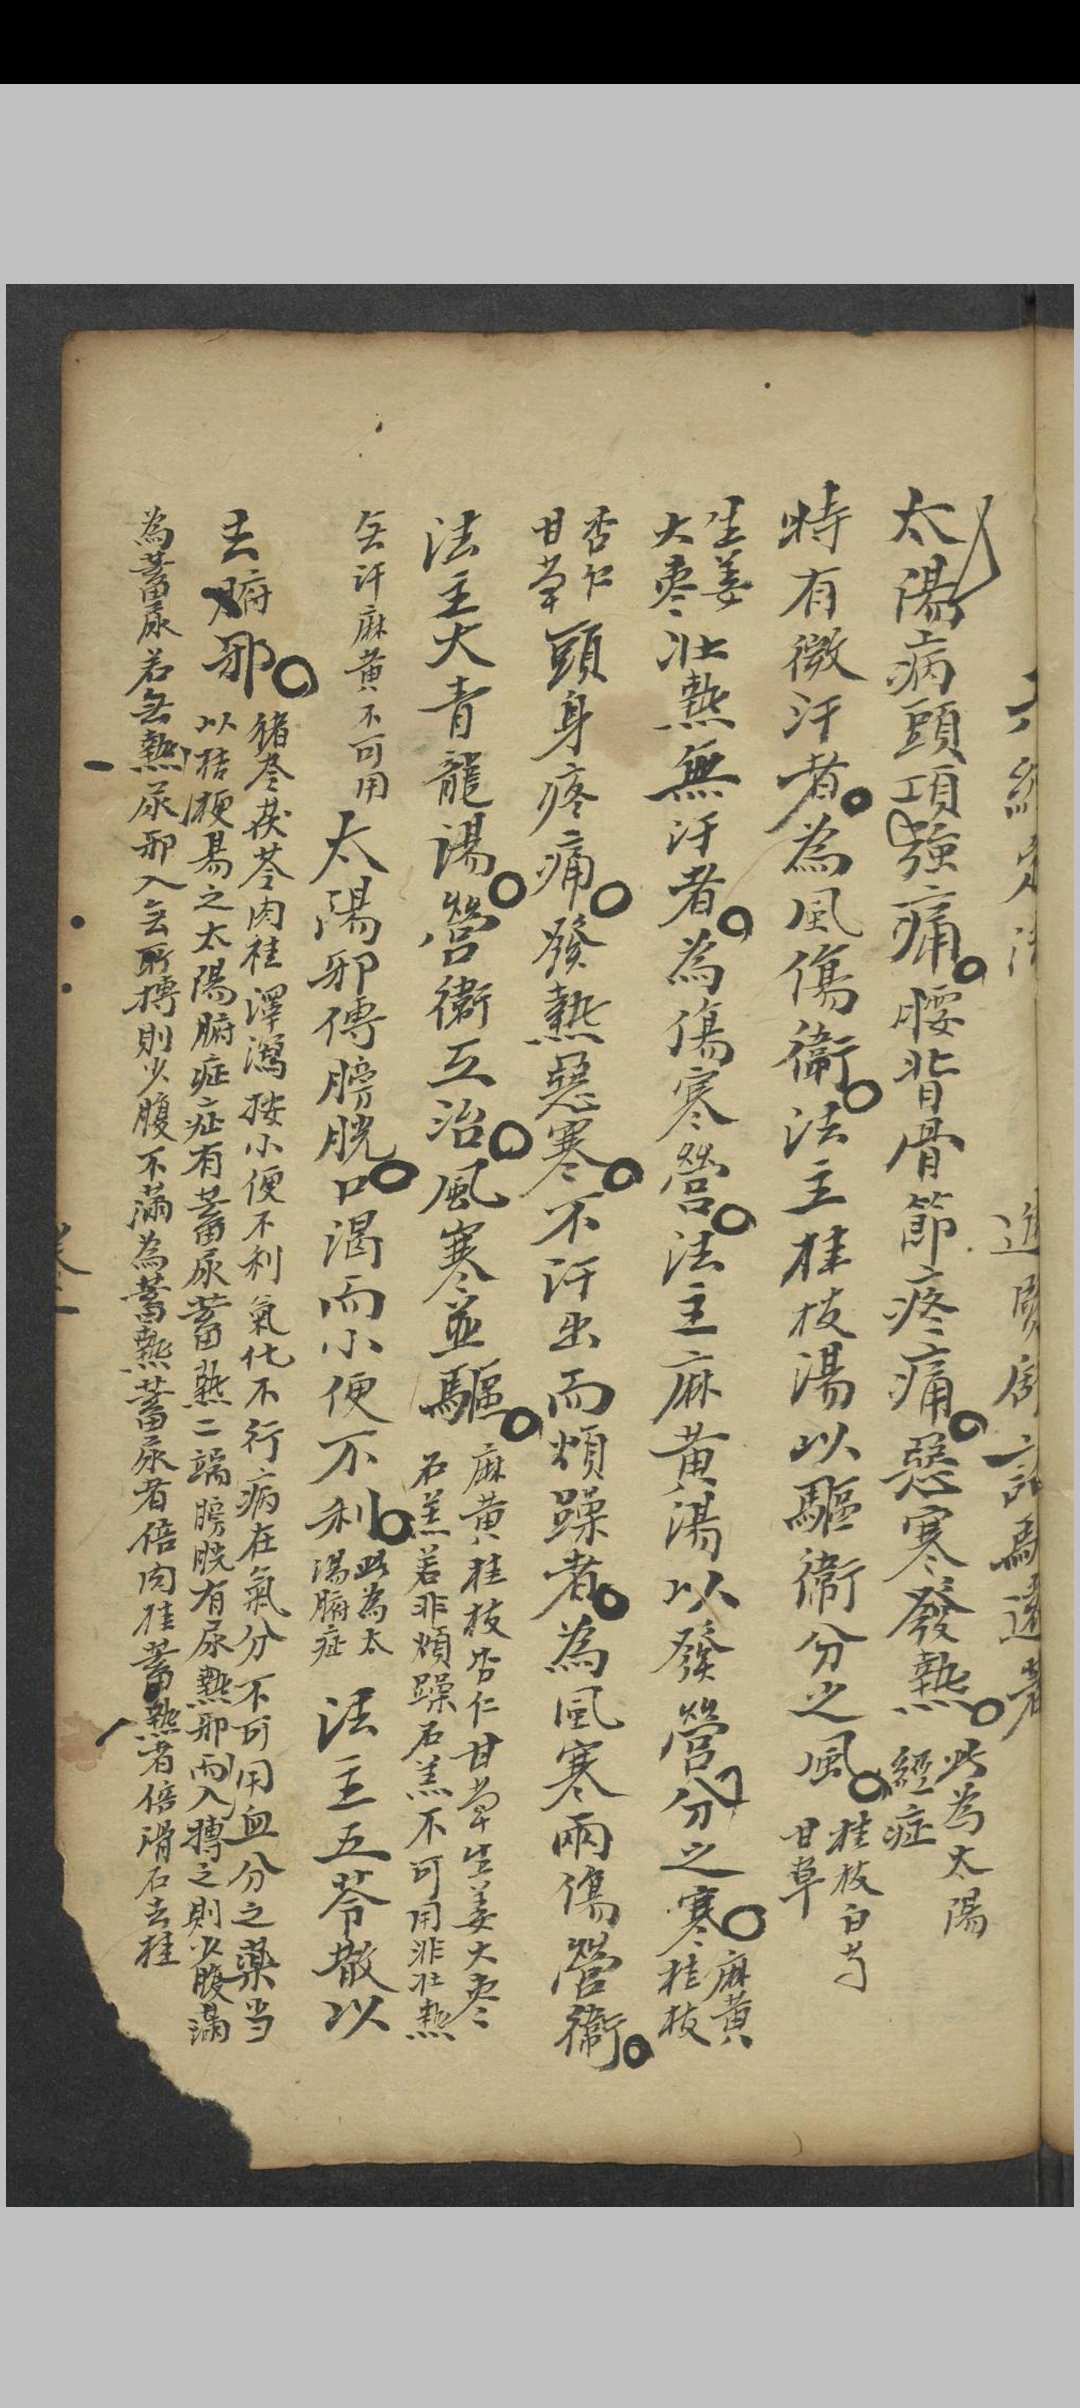 六經定法
進賢 詔馳遠著
太陽病頭項強痛腰背骨節疼痛惡寒發熱此為太陽經症
特有微汗者為風傷衞法主桂枝湯以驅衞分之風桂枝白芍甘草
生姜大枣壯熱無汗者為傷寒營法主麻黃湯以發營分之寒麻黃桂枝
杏仁甘草頭身疼痛發熱惡寒不汗出而煩躁者為風寒兩傷營衞
法主大青龍湯營衞互治風寒並驅麻黃桂枝杏仁甘草生姜大枣石羔若非煩躁石羔不可用非壯熱
无汗麻黃不可用太陽邪傳膀胱口渴而小便不利此為太陽腑症法主五苓散以
去腑邪猪苓茯苓肉桂澤瀉按小便不利氣化不行病在氣分不可用血分之藥当
以桔梗易之太陽腑症症有蓄尿蓄熱二端膀胱有尿熱邪而入搏之則少腹滿
為蓄尿若无熱尿邪入无所搏則少腹不滿為蓄熱蓄尿者倍肉桂蓄熱者倍滑石去桂